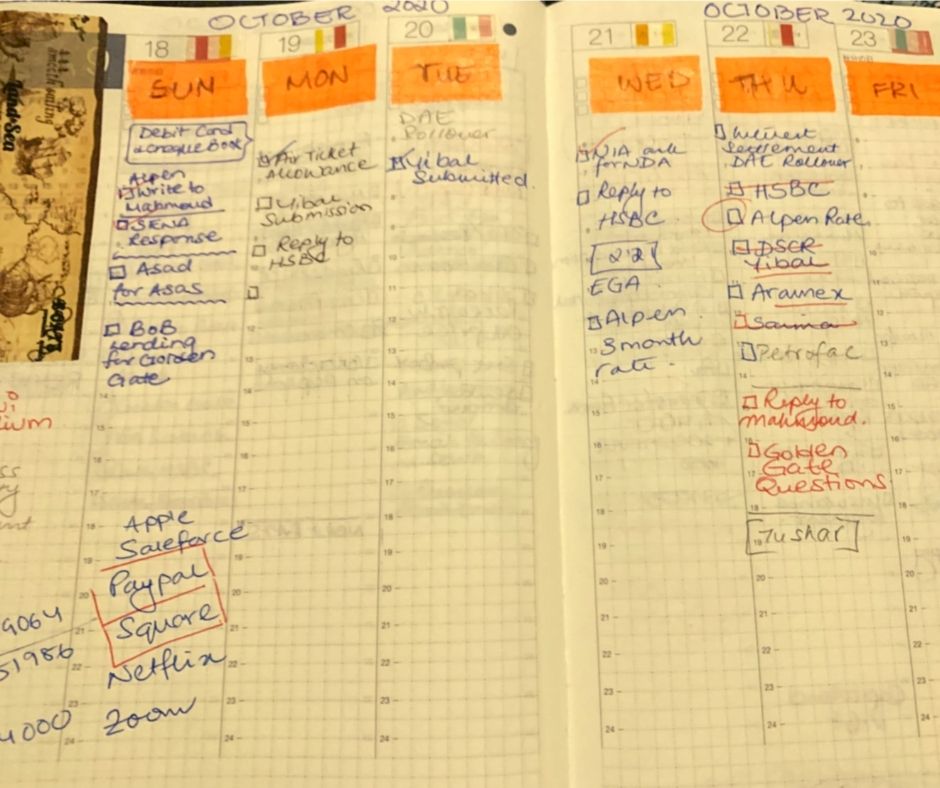 OCTOBER 2020
18
SUN
Debit Card
& Cheque Book
Alpen
Write to
Mahmoud
SENA
Response
Asad
for Asas
BoB
lending
for Golden
Gate
Apple
Saleforce
Paypal
Square
Netflix
Zoom
19
MON
Air Ticket
Allowance
Yibal
Submission
Reply to
HSBC
20
TUE
DAE
Rollover
Yibal
Submitted.
OCTOBER 2020
21
WED
NIA ask
for NDA
Reply to
HSBC.
EGA
Alpen
3 month
rate.
22
THU
Interest
Settlement
DAE Rollover
HSBC
Alpen Rate
DSCR
Yibal
Aramex
Saima
Petrofac
Reply to
Mahmoud.
Golden
Gate
Questions
Tushar
23
FRI
Land & Sea
9064
51986
4000